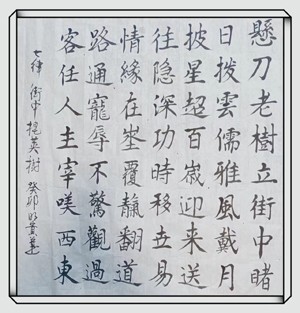 懸刀老樹立街中睹
日撥雲儒雅風戴月
披星超百歲迎来送
往隐深功時移世易
情緣在埊覆靝翻道
路通寵辱不驚觀過
客任人主宰西東
七律 街中英樹 癸卯